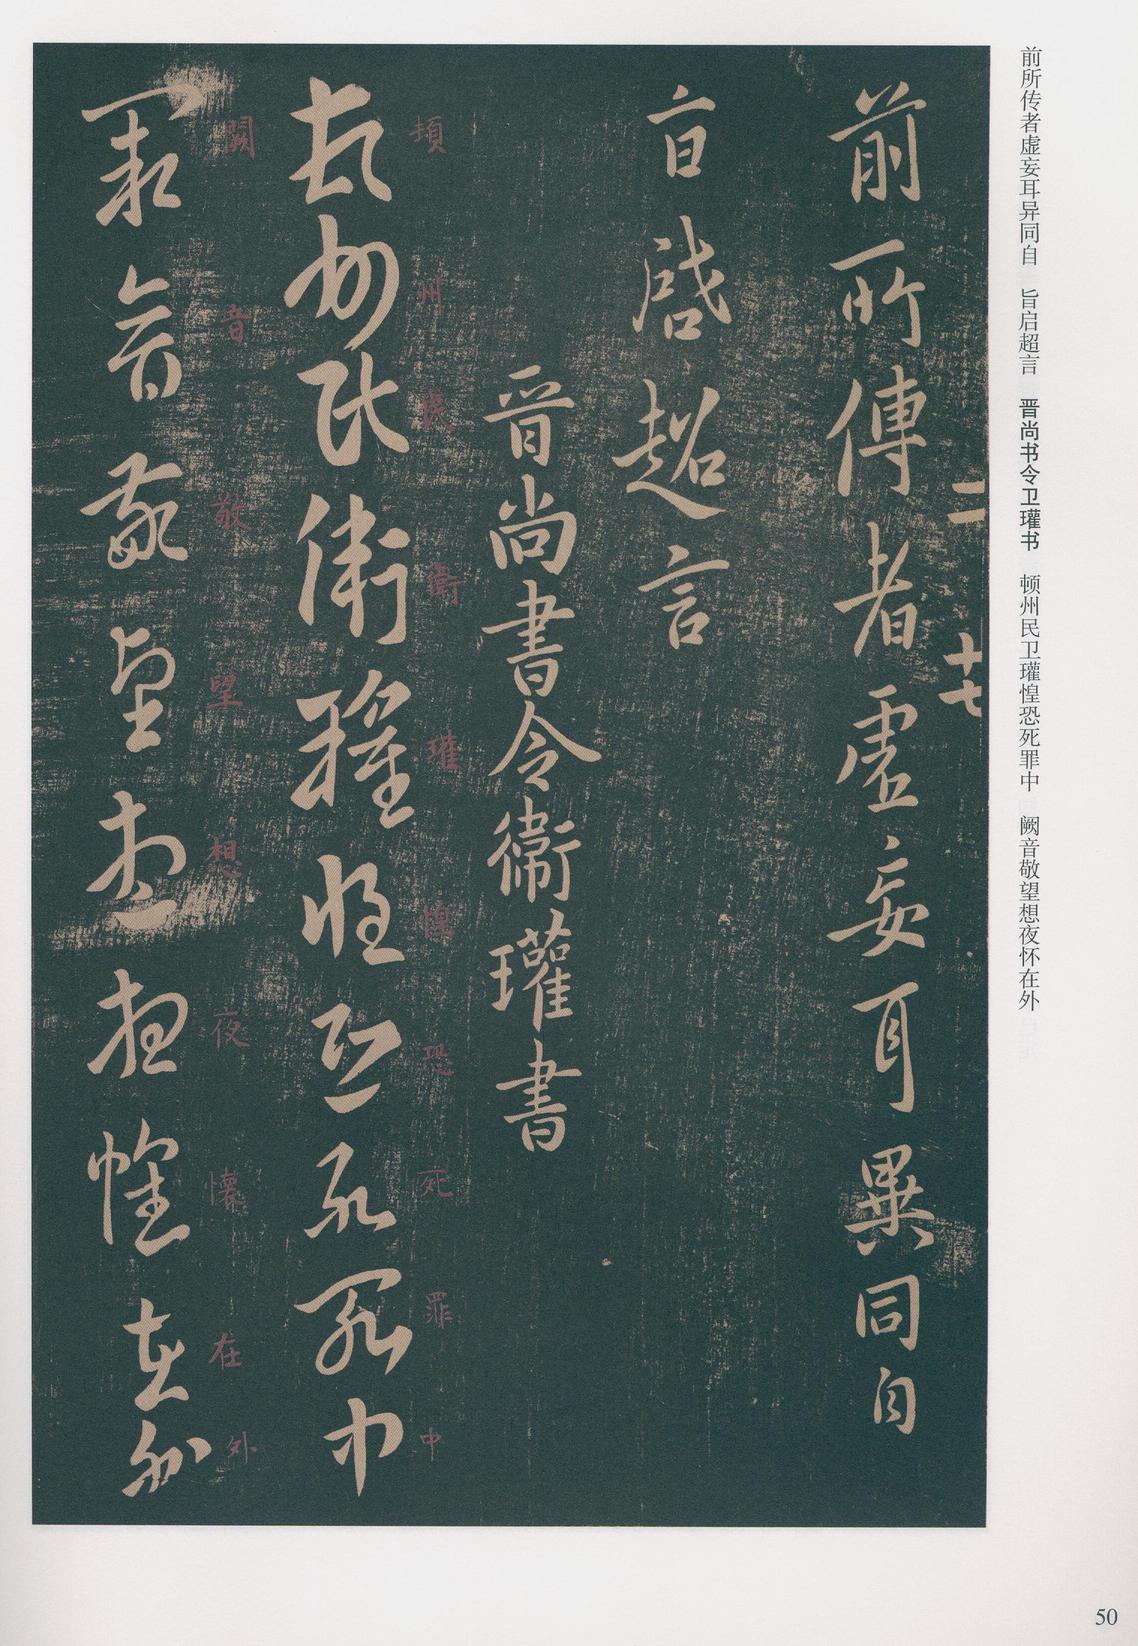 前所传者虚妄耳异同自　旨启超言　晋尚书令卫瓘书　顿州民卫瓘惶恐死罪中　阙音敬望想夜怀在外
二
十七
前所傳者虛妄耳異同自
旨啓超言
晉尚書令衛瓘書
頓州民衛瓘惶恐死罪中
頓州民衛瓘惶恐死罪中
闕音敬望想夜懷在外
闕音敬望想夜懷在外
50